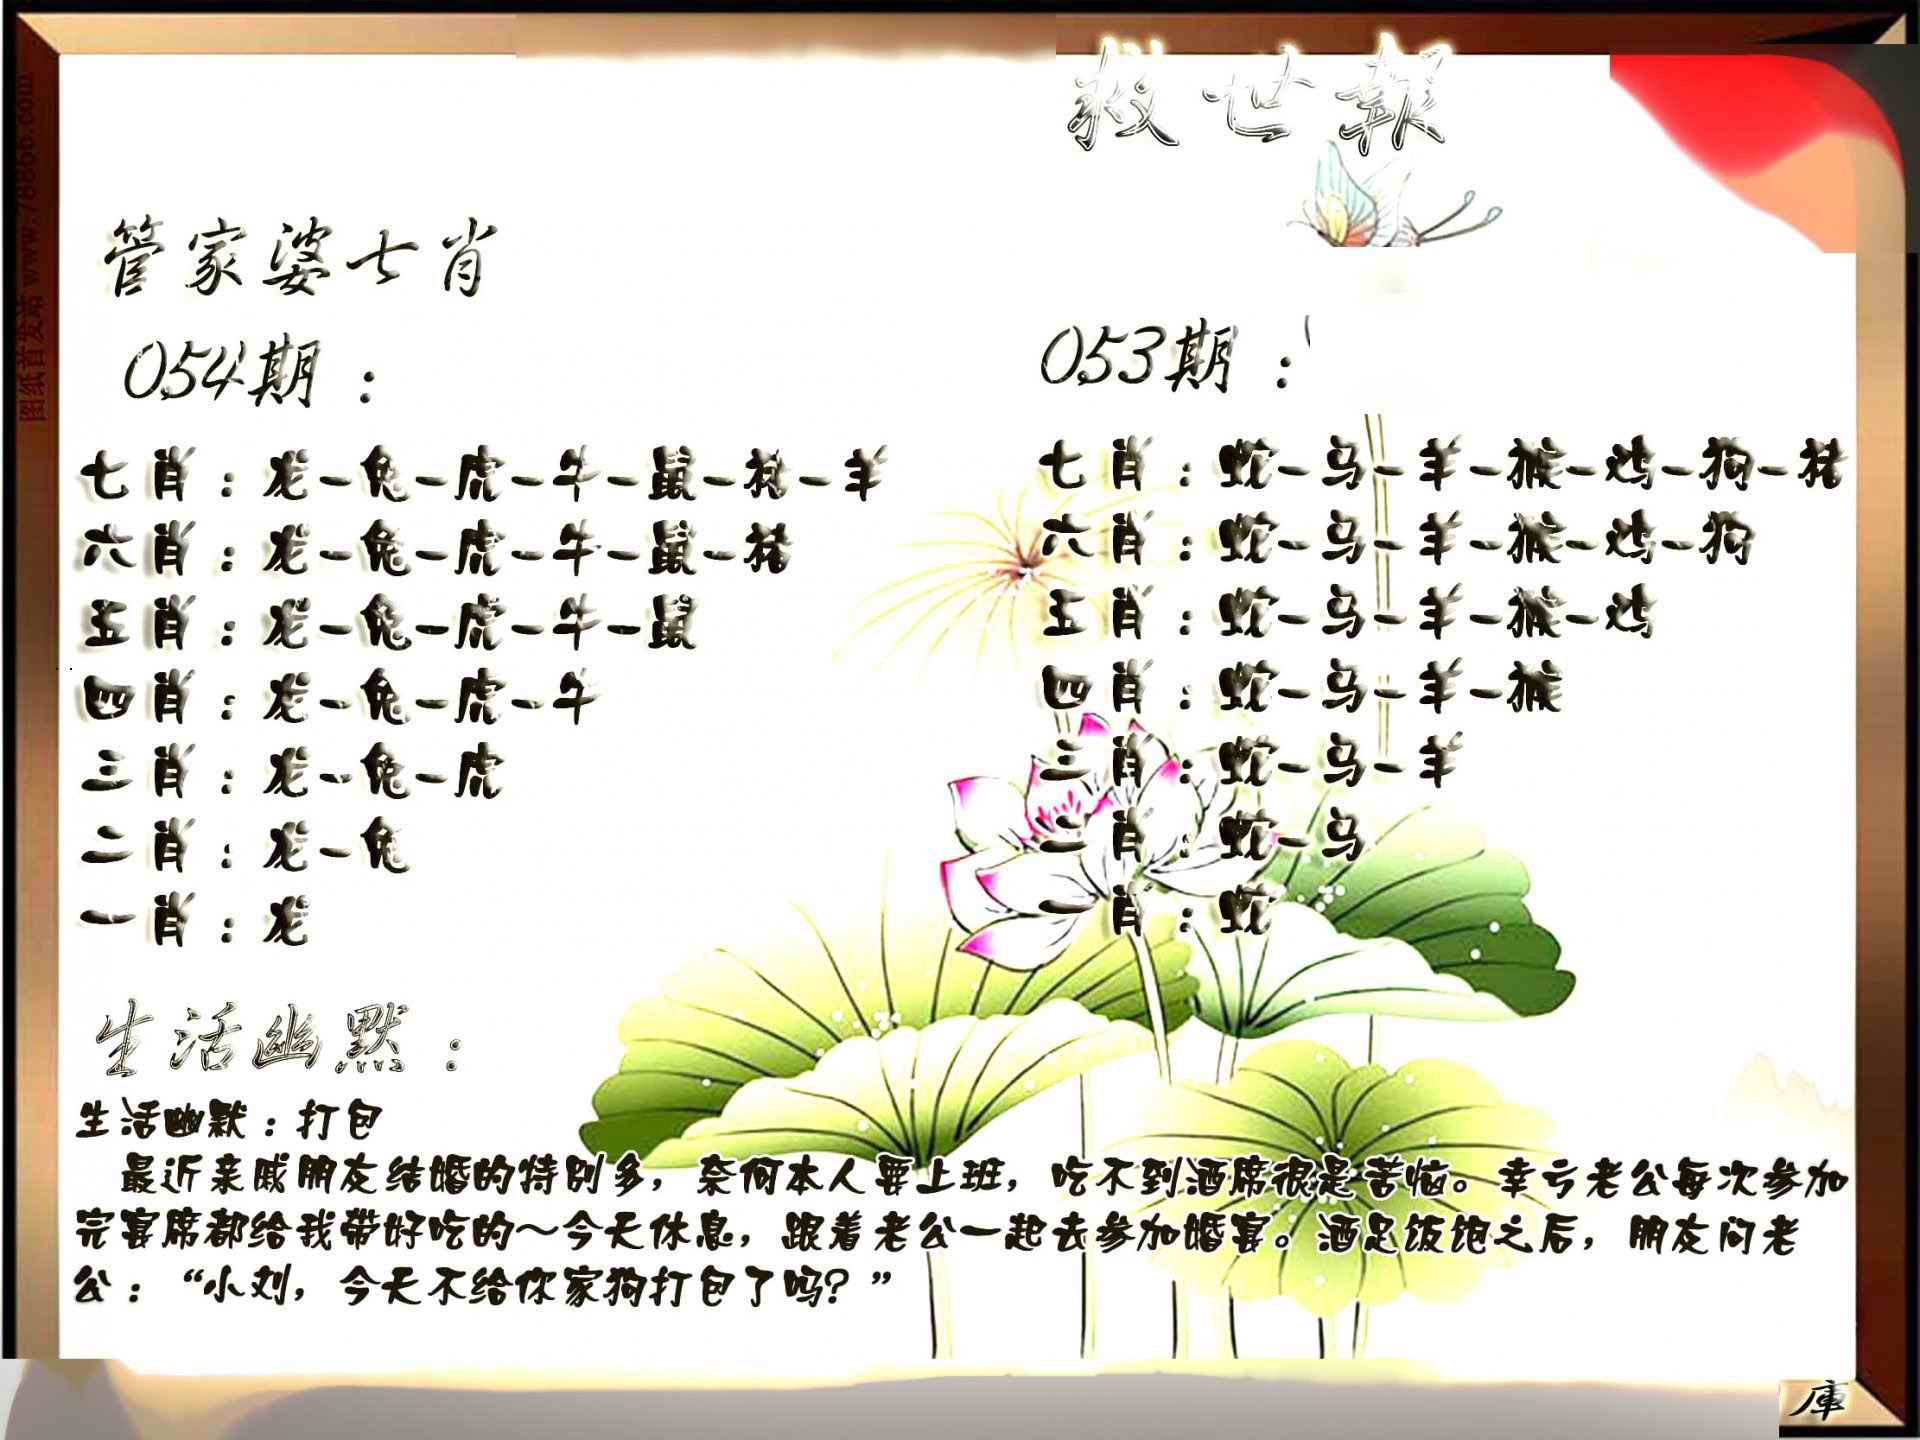 救世報
管家婆七肖
054期：
七肖：龙-兔-虎-牛-鼠-猪-羊
六肖：龙-兔-虎-牛-鼠-猪
五肖：龙-兔-虎-牛-鼠
四肖：龙-兔-虎-牛
三肖：龙-兔-虎
二肖：龙-兔
一肖：龙
053期：
七肖：蛇-马-羊-猴-鸡-狗-猪
六肖：蛇-马-羊-猴-鸡-狗
五肖：蛇-马-羊-猴-鸡
四肖：蛇-马-羊-猴
三肖：蛇-马-羊
二肖：蛇-马
一肖：蛇
生活幽默：
生活幽默：打包
最近亲戚朋友结婚的特别多，奈何本人要上班，吃不到酒席很是苦恼。幸亏老公每次参加
完宴席都给我带好吃的～今天休息，跟着老公一起去参加婚宴。酒足饭饱之后，朋友问老
公：“小刘，今天不给你家狗打包了吗？”
图纸首发站 www.78866.com
庫